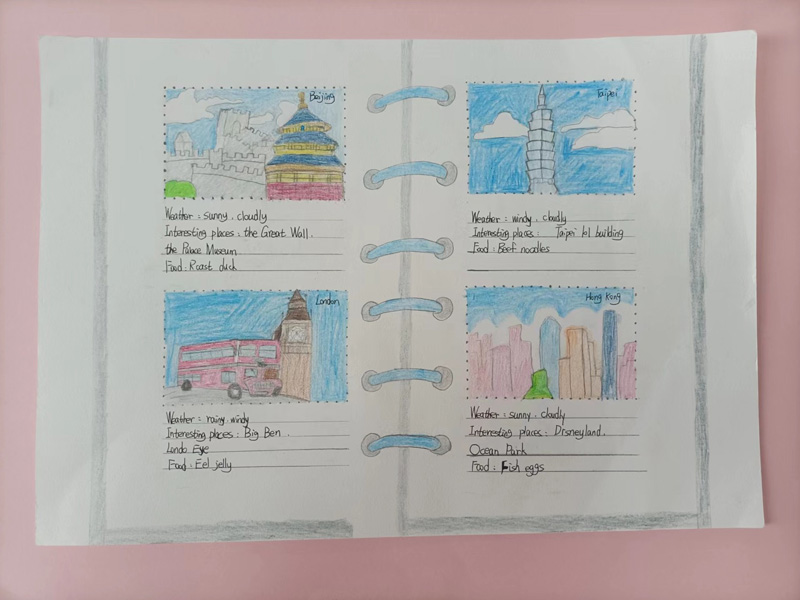 Beijing
Weather : sunny . cloudly
Interesting places : the Great Wall .
the Palace Museum .
Food : Roast duck
London
Weather : rainy windy
Interesting places : Big Ben .
Londo Eye
Food : Eel jelly
Taipei
Weather : windy . cloudly
Interesting places : Taipei 101 building
Food : Beef noodles
Hong Kong
Weather : sunny . cloudly
Interesting places : Disneyland .
Ocean Park
Food : Fish eggs